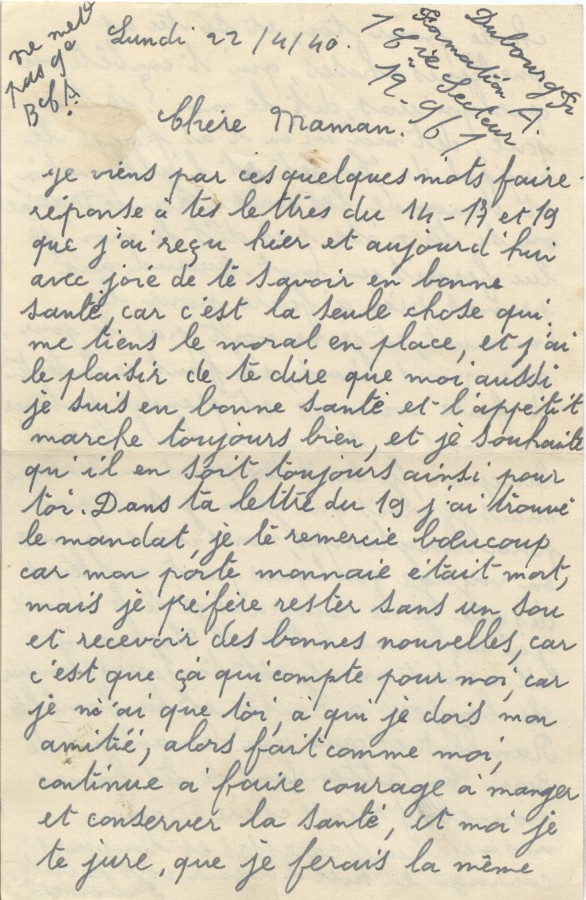 ne met
pas ça
B.A.
Lundi 22/4/40.
Dubourg Fr
Formation A.
16ère Secteur
12-961
Chère Maman.
je viens par ces quelques mots faire
réponse à tes lettres du 14-17 et 19
que j'ai reçu hier et aujourd'hui
avec joie de te savoir en bonne
santé, car c'est la seule chose qui
me tiens le moral en place, et j'ai
le plaisir de te dire que moi aussi
je suis en bonne santé et l'appétit
marche toujours bien, et je souhaite
qu'il en soit toujours ainsi pour
toi. Dans ta lettre du 19 j'ai trouvé
le mandat, je te remercie bœucoup
car mon porte monnaie était mort,
mais je préfère rester sans un sou
et recevoir des bonnes nouvelles, car
c'est que çà qui compte pour moi, car
je n'ai que toi, à qui je dois mon
amitié, alors fait comme moi,
continue à faire courage à manger
et conserver la santé, et moi je
te jure, que je ferais la même